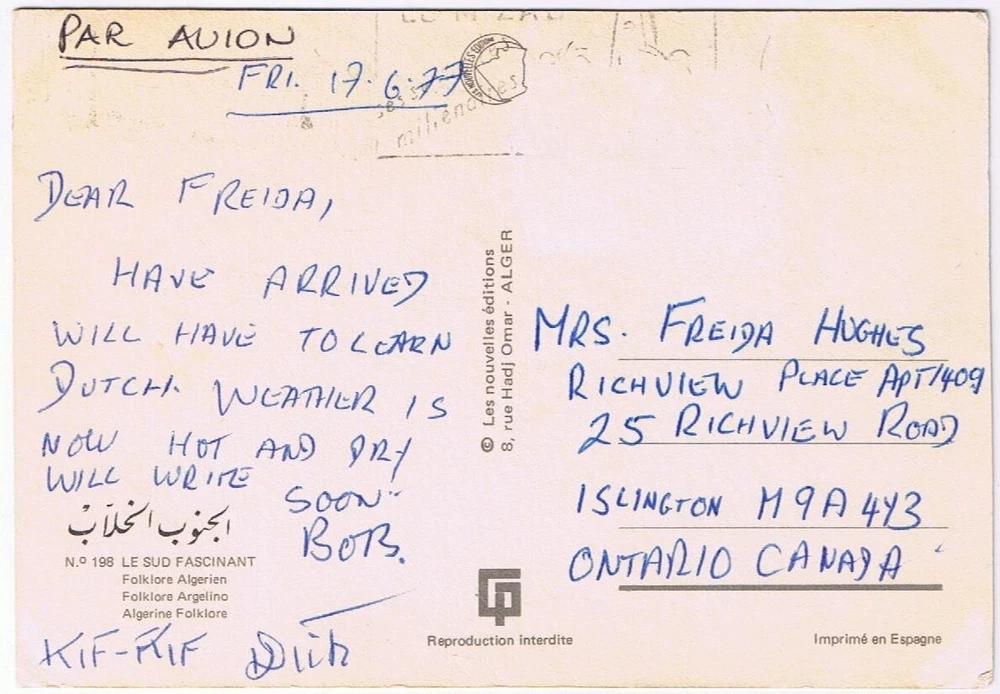 PAR AVION
FRI. 17.6.77
DEAR FREIDA,
HAVE ARRIVED
WILL HAVE TO LEARN
DUTCH. WEATHER IS
NOW HOT AND DRY
WILL WRITE
SOON
BOB.
الجنوب الخلاّب
N.º 198 LE SUD FASCINANT
Folklore Algerien
Folklore Argelino
Algerine Folklore
KIF-KIF
© Les nouvelles éditions
8, rue Hadj Omar - ALGER
Reproduction interdite
MRS. FREIDA HUGHES
RICHVIEW PLACE APT/1409
25 RICHVIEW ROAD
ISLINGTON M9A 4Y3
ONTARIO CANADA
Imprimé en Espagne